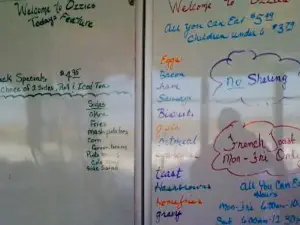 Welcome To Ozzies
Today's Feature
Specials $4.95
Choice of 2 Sides, Roll & Iced Tea
Sides
Okra
Fries
mash potatoes
corn
Green beans
Side Salad
Welcome To Ozzies
All you Can Eat $5.49
Children under
Eggs
Bacon
ham
Sausage
Biscuits
grits
oatmeal
toast
Hashbrowns
homefries
gravy
No Sharing
French Toast
Mon-Fri Only
All You Can Eat
Hours
Mon-Fri 6:00am-10
Sat 6:00am-11:30